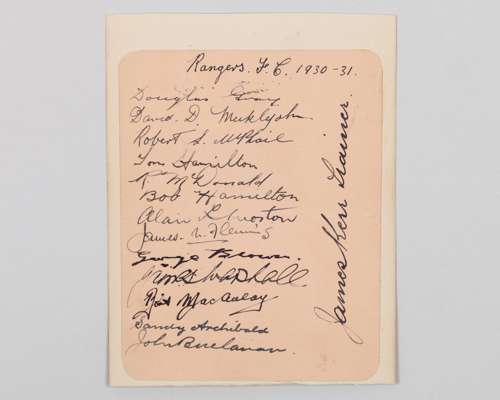 Rangers. F.C. 1930-31.
Douglas Gray
David D. Meiklejohn
Robert L. McPhail
Tom Hamilton
R. McDonald
Bob Hamilton
Alan L. Morton
James. W. Fleming
George Brown.
James Marshall.
Bob MacAulay
Sandy Archibald
John Buchanan.
James Kerr Trainer.